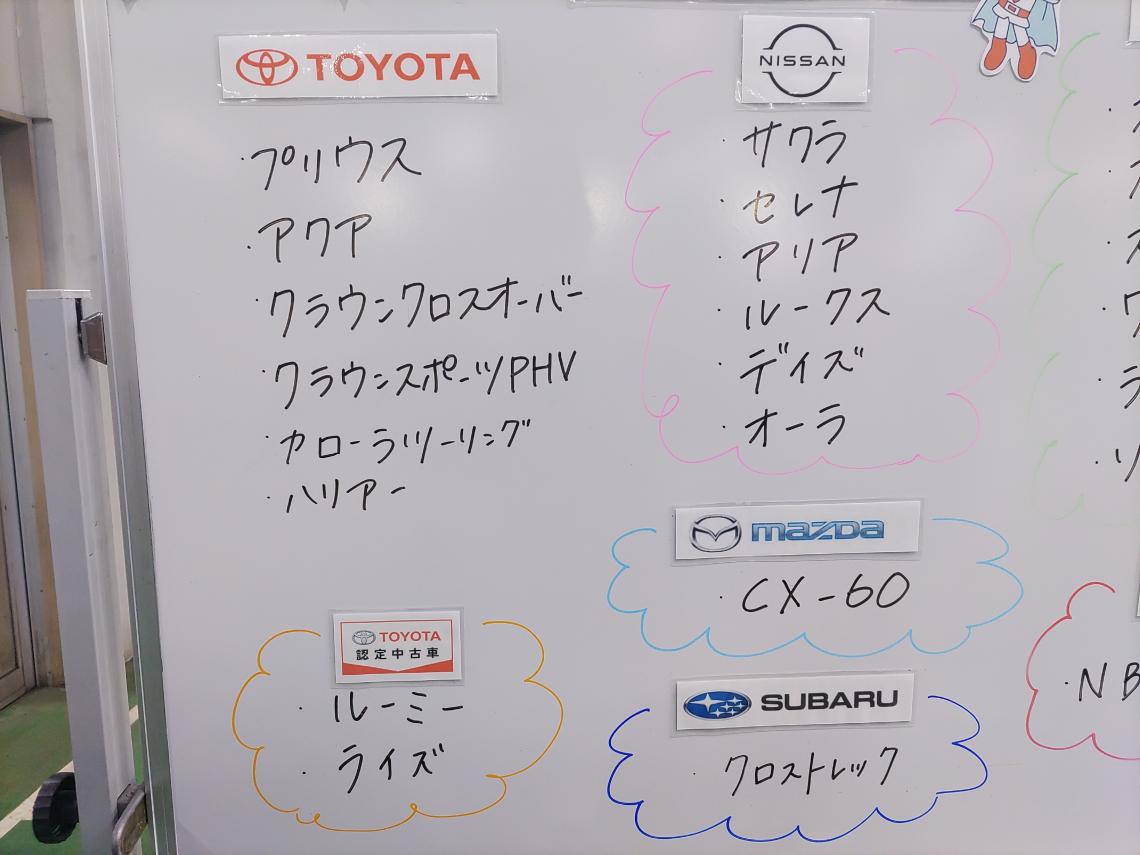 TOYOTA
・プリウス
・アクア
・クラウンクロスオーバー
・クラウンスポーツPHV
・カローラツーリング
・ハリアー
TOYOTA
認定中古車
・ルーミー
・ライズ
NISSAN
・サクラ
・セレナ
・アリア
・ルークス
・デイズ
・オーラ
mazda
・CX-60
SUBARU
・クロストレック
・NB